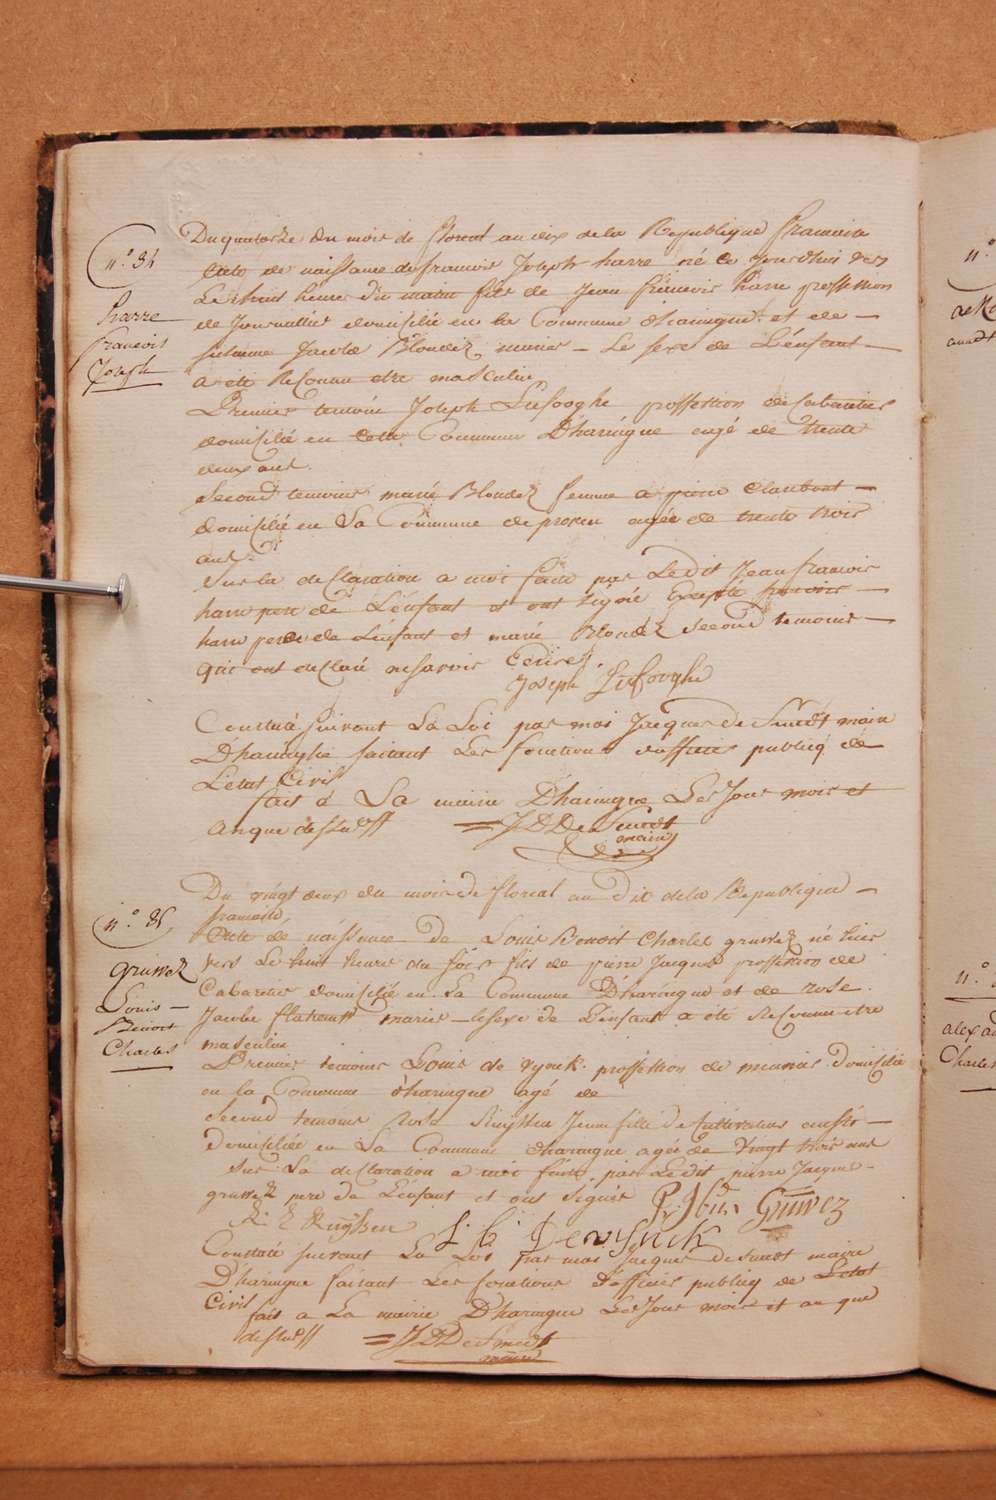 n.° 34
harre
francois
Joseph
Du quatorze du mois de floreal an dix de la Republique francaise
acte de naissance de francois Joseph harre né ce jourdhui vers
Les huit heures du matin fils de Jean francois harre profession
de Journallier domicilié en la Commune dharingue et de
Jacoba Blondez mariés Le sexe de L'enfant
a été Reconnu etre masculin
Premier temoin Joseph Lefooghe proffession de Cabaretier
domicilié en cette Commune Dharingue agé de trente
deux ans.
Second temoins marie Blondez femme a pierre
domicilié en La Commune de proven agée de trente trois
ans
Sur la declaration a moi faitte par Ledit Jean francois
harre pere de L'enfant et ont signé Excepté francois
harre pere de L'enfant et marie Blondez second temoins
qui ont declaré ne savoir Ecrire
Joseph Lefooghe
Constaté suivant La Loi par moi Jacques de Smedt maire
Dharinghe faisant Les fonctions d'officier publicq de
L'etat Civil
fait a La mairie Dharingue Les Jour mois et
an que dessus
J D De Smedt
maire
n.° 35
gruwez
Louis
Benoit
Charles
Du vingt deux du mois de floreal an Dix de la Republique
francaise
Acte de naissance de Louis Benoit Charles gruwez né hier
vers Le huit heures du soir fils de pierre Jacques proffession de
Cabaretier domicilié en La Commune Dharingue et de rose
Jacobe mariés le sexe de L'enfant a été Reconnu etre
masculin
Premier temoins Louis de vynck proffession de domicilié
en la Commune dharingue agé de
Second temoins Ruyssen Jeune fille de Cultivateur
domiciliée en La Commune dharingue agée de vingt trois ans
Sur La declaration a moi faitte par Ledit pierre Jacques
gruwez pere de L'enfant et ont signés
Ruyssen
Devynck
Gruwez
Constaté suivant La Loi par moi Jacques de Smedt maire
Dharingue faisant Les fonctions d'officier publicq de L'etat
Civil
fait a La mairie Dharingue Les Jour mois et an que
dessus
J D De Smedt
maire
n.°
n.°
Charles